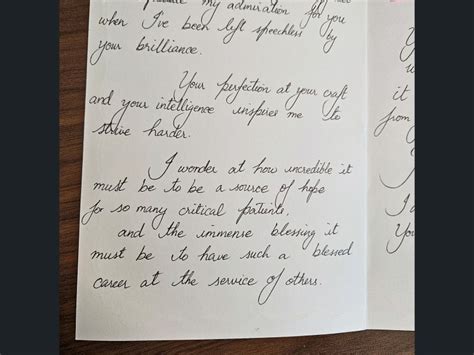 my admiration for you
when I've been left speechless by
your brilliance.
Your perfection at your craft
and your intelligence inspires me to
strive harder.
I wonder at how incredible it
must be to be a source of hope
for so many critical patients,
and the immense blessing it
must be to have such a blessed
career at the service of others.
it
from
I
You